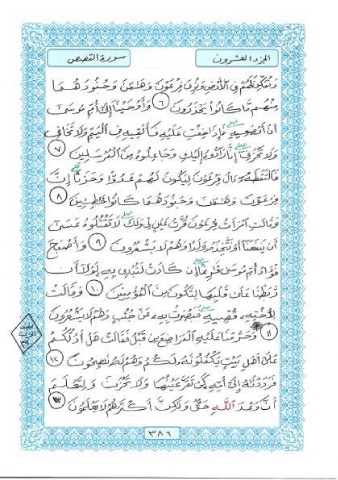 الجزء العشرون
سورة القصص
وَنُمَكِّنَ لَهُمْ فِي الْأَرْضِ وَنُرِيَ فِرْعَوْنَ وَهَامَانَ وَجُنُودَهُمَا
مِنْهُم مَّا كَانُوا يَحْذَرُونَ ٦ وَأَوْحَيْنَا إِلَىٰ أُمِّ مُوسَىٰ
أَنْ أَرْضِعِيهِ فَإِذَا خِفْتِ عَلَيْهِ فَأَلْقِيهِ فِي الْيَمِّ وَلَا تَخَافِي
وَلَا تَحْزَنِي إِنَّا رَادُّوهُ إِلَيْكِ وَجَاعِلُوهُ مِنَ الْمُرْسَلِينَ ٧
فَالْتَقَطَهُ آلُ فِرْعَوْنَ لِيَكُونَ لَهُمْ عَدُوًّا وَحَزَنًا إِنَّ
فِرْعَوْنَ وَهَامَانَ وَجُنُودَهُمَا كَانُوا خَاطِئِينَ ٨
وَقَالَتِ امْرَأَتُ فِرْعَوْنَ قُرَّتُ عَيْنٍ لِّي وَلَكَ لَا تَقْتُلُوهُ عَسَىٰ
أَن يَنفَعَنَا أَوْ نَتَّخِذَهُ وَلَدًا وَهُمْ لَا يَشْعُرُونَ ٩ وَأَصْبَحَ
فُؤَادُ أُمِّ مُوسَىٰ فَارِغًا إِن كَادَتْ لَتُبْدِي بِهِ لَوْلَا أَن
رَّبَطْنَا عَلَىٰ قَلْبِهَا لِتَكُونَ مِنَ الْمُؤْمِنِينَ ١٠ وَقَالَتْ
لِأُخْتِهِ قُصِّيهِ فَبَصُرَتْ بِهِ عَن جُنُبٍ وَهُمْ لَا يَشْعُرُونَ
١١ وَحَرَّمْنَا عَلَيْهِ الْمَرَاضِعَ مِن قَبْلُ فَقَالَتْ هَلْ أَدُلُّكُمْ
عَلَىٰ أَهْلِ بَيْتٍ يَكْفُلُونَهُ لَكُمْ وَهُمْ لَهُ نَاصِحُونَ ١٢
فَرَدَدْنَاهُ إِلَىٰ أُمِّهِ كَيْ تَقَرَّ عَيْنُهَا وَلَا تَحْزَنَ وَلِتَعْلَمَ
أَنَّ وَعْدَ اللَّهِ حَقٌّ وَلَٰكِنَّ أَكْثَرَهُمْ لَا يَعْلَمُونَ ١٣
٣٨٦